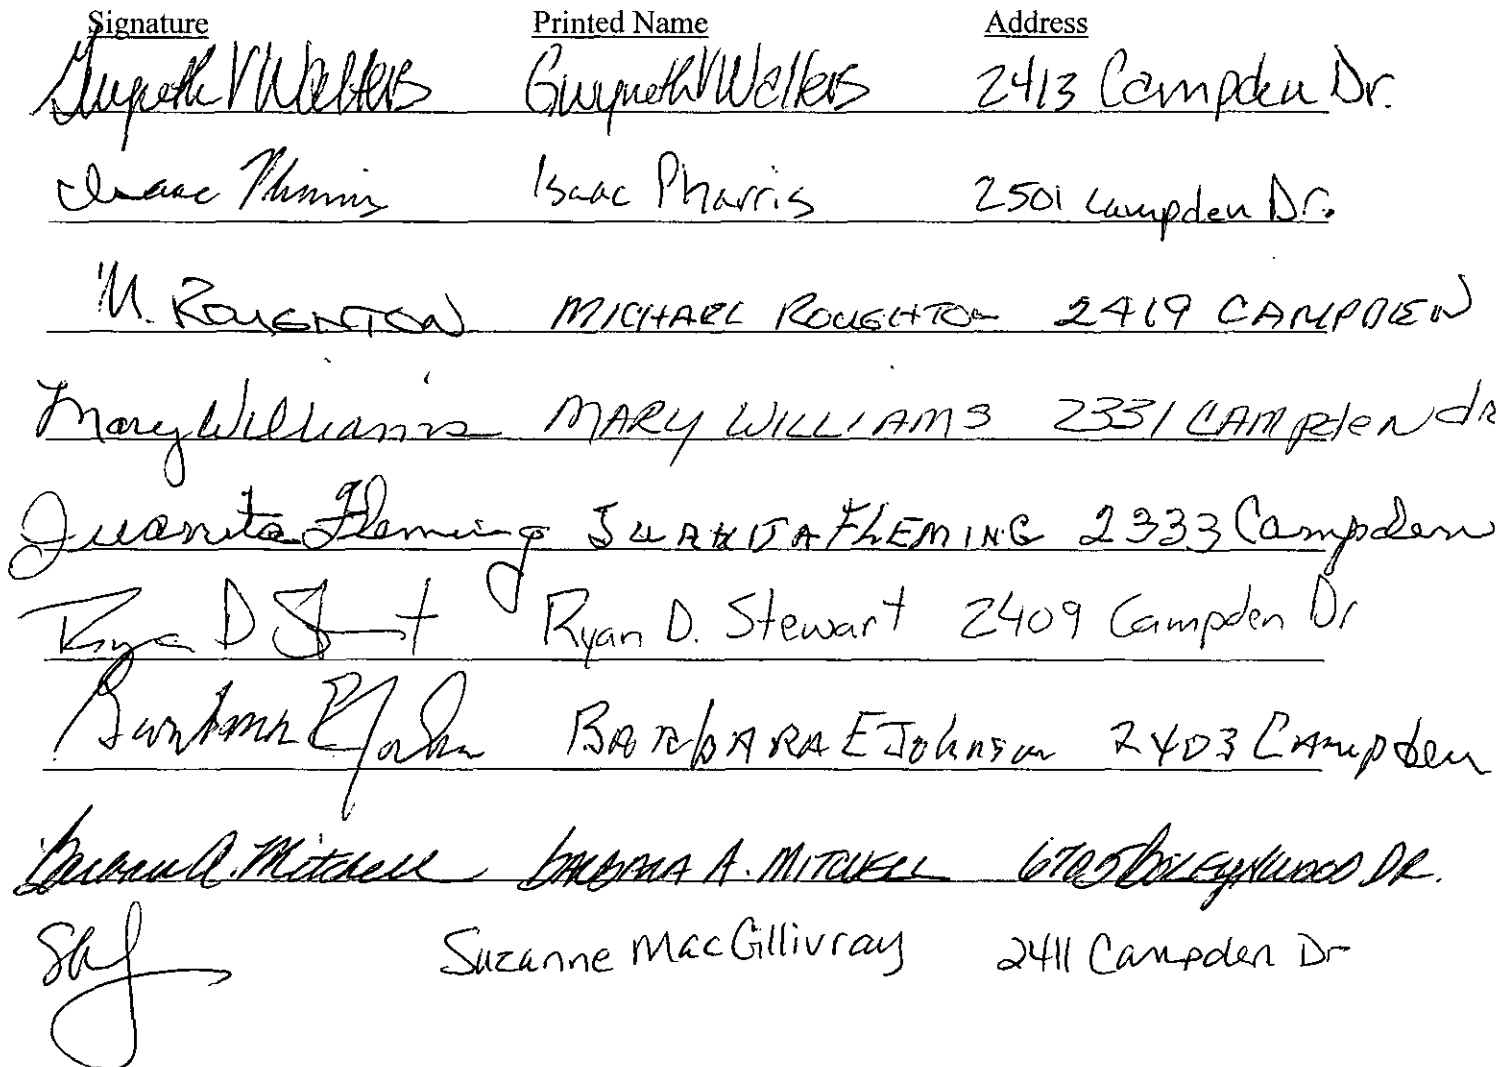 Signature Printed Name Address
Gwyneth V Walters Gwyneth V Walters 2413 Campden Dr.
Isaac Pharris Isaac Pharris 2501 Campden Dr.
M. ROUGHTON MICHAEL ROUGHTON 2419 CAMPDEN
Mary Williams MARY WILLIAMS 2331 CAMpdeN dr
Juanita Fleming JUANITA FLEMING 2333 Campden
Ryan D Stewart Ryan D. Stewart 2409 Campden Dr
Barbara E Johnson BARbARA E Johnson 2403 CAmpden
Barbara A. Mitchell BARBARA A. MITCHELL 6705 BOLEYNWOOD DR.
Suzanne MacGillivray 2411 Campden Dr